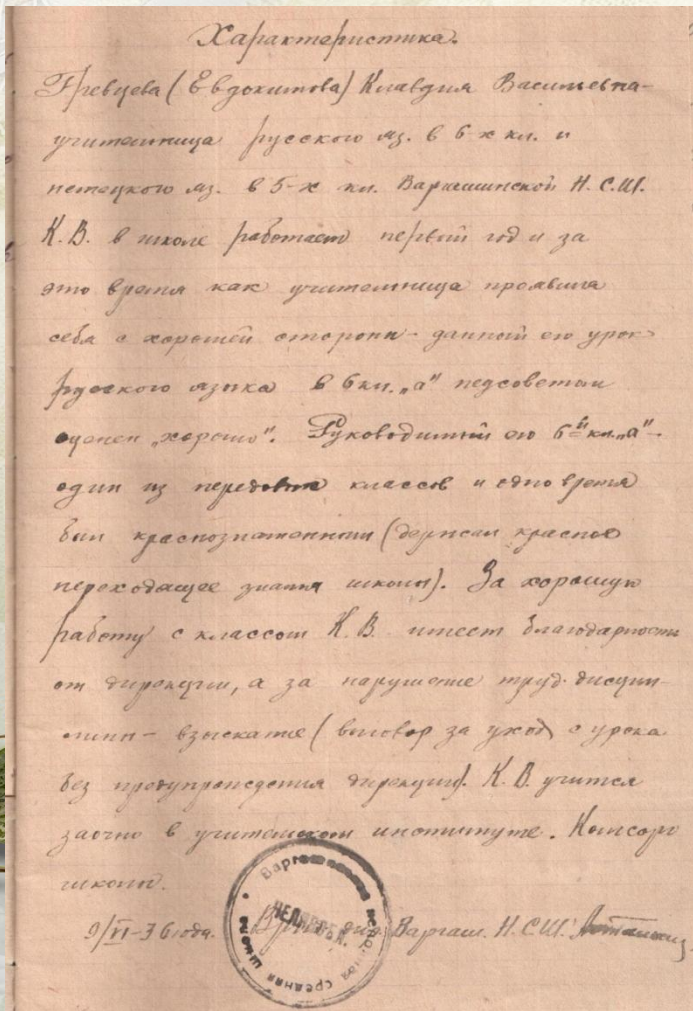 Характеристика.
Гревцева (Евдокимова) Клавдия Васильевна-
учительница русского яз. в 6-х кл. и
немецкого яз. в 5-х кл. Варгашинской Н.С.Ш.
К.В. в школе работает первый год и за
это время как учительница проявила
себя с хорошей стороны - данный ею урок
русского языка в 6 кл. „а" педсоветом
оценен „хорошо". Руководимый ею 6й кл. „а" -
один из передовых классов и одно время
был краснознаменным (держал красное
переходящее знамя школы). За хорошую
работу с классом К.В. имеет благодарность
от дирекции, а за нарушение труд. дисцип-
лины - взыскание (выговор за уход с урока
без предупреждения дирекции). К.В. учится
заочно в учительском институте. Комсорг
школы.
9/VI-36 года. Врид дир. Варгаш. Н.С.Ш.
Варгашинская неполная средняя школа